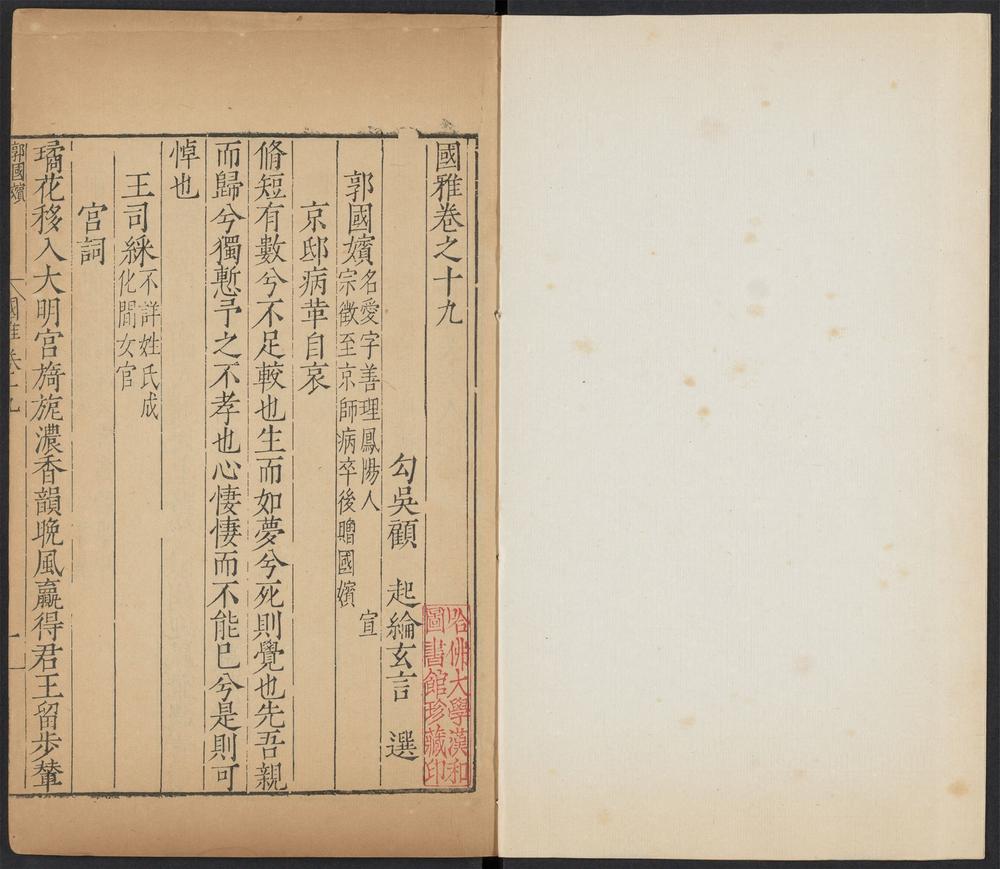 國雅卷之十九
勾吳顧 起綸玄言 選
郭國嬪名愛字善理鳳陽人 宣
宗徵至京師病卒後贈國嬪
京邸病革自哀
脩短有數兮不足較也生而如夢兮死則覺也先吾親
而歸兮獨慙予之不孝也心悽悽而不能已兮是則可
悼也
王司綵不詳姓氏成
化間女官
宮詞
璚花移入大明宮旖旎濃香韻晚風贏得君王留步輦
郭國嬪
國雅 卷十九
一
哈佛大學漢和
圖書館珍藏印